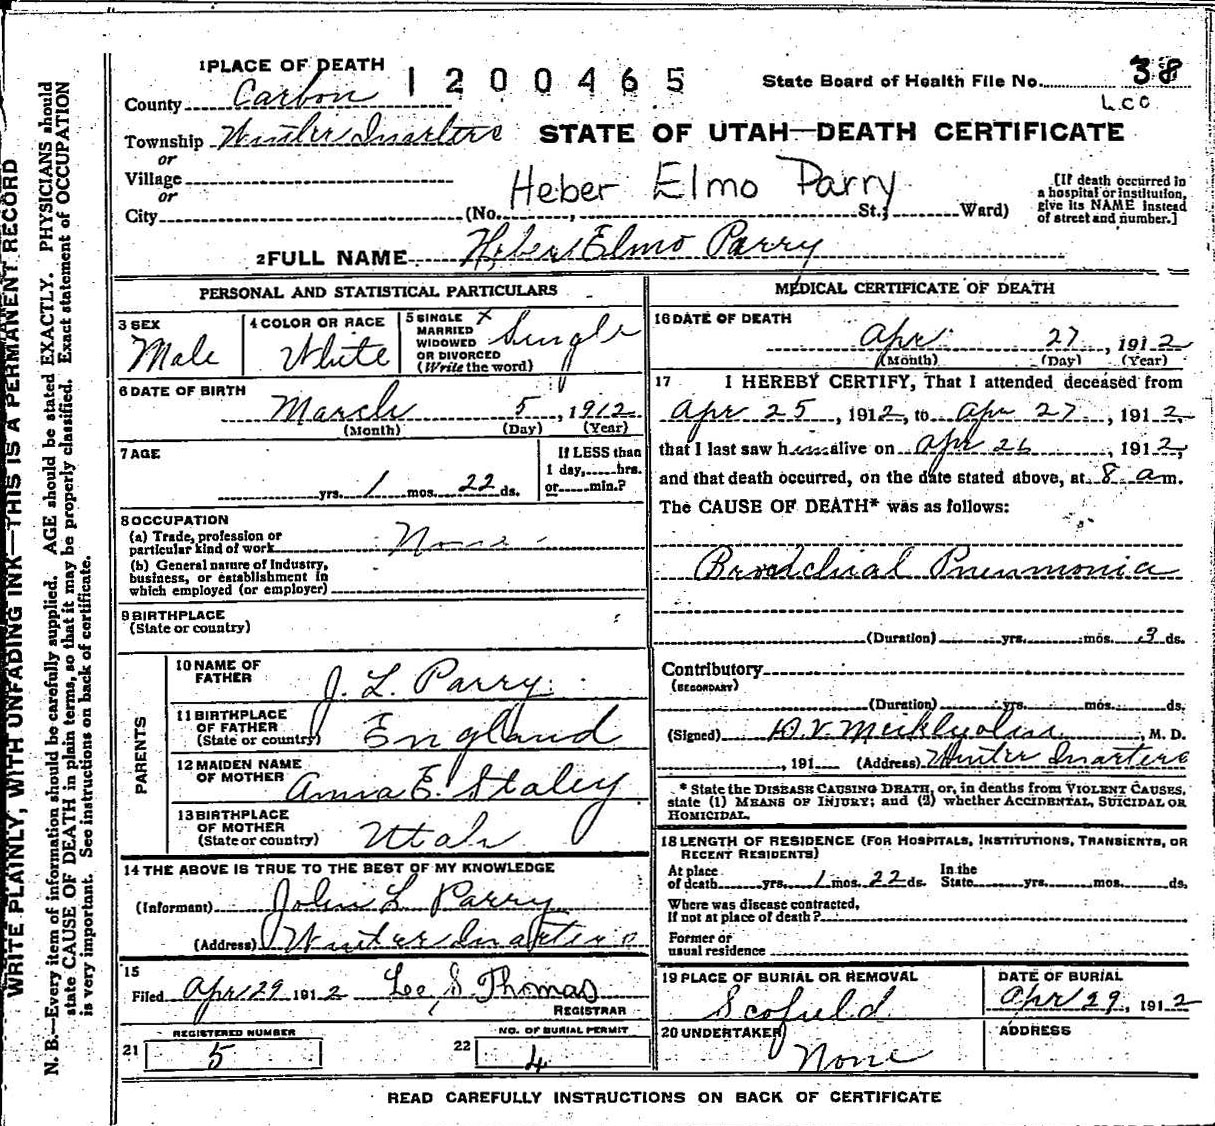 WRITE PLAINLY, WITH UNFADING INK—THIS IS A PERMANENT RECORD
N. B.—Every item of information should be carefully supplied. AGE should be stated EXACTLY. PHYSICIANS should
state CAUSE OF DEATH in plain terms, so that it may be properly classified. Exact statement of OCCUPATION
is very important. See instructions on back of certificate.
1 PLACE OF DEATH
1200465
State Board of Health File No. 38
L C C
County Carbon
Township Winter Quarters
STATE OF UTAH—DEATH CERTIFICATE
or
Village
or
City
Heber Elmo Parry
(No. , St.; Ward)
[If death occurred in
a hospital or institution,
give its NAME instead
of street and number.]
2 FULL NAME Heber Elmo Parry
PERSONAL AND STATISTICAL PARTICULARS
3 SEX
Male
4 COLOR OR RACE
White
5 SINGLE X
MARRIED
WIDOWED
OR DIVORCED
(Write the word)
Single
6 DATE OF BIRTH
March 5, 1912
(Month) (Day) (Year)
7 AGE
yrs. 1 mos. 22 ds.
If LESS than
1 day, hrs.
or min.?
8 OCCUPATION
(a) Trade, profession or
particular kind of work None
(b) General nature of Industry,
business, or establishment in
which employed (or employer)
9 BIRTHPLACE
(State or country)
PARENTS
10 NAME OF
FATHER
J. L. Parry
11 BIRTHPLACE
OF FATHER
(State or country)
England
12 MAIDEN NAME
OF MOTHER
Anna E. Staley
13 BIRTHPLACE
OF MOTHER
(State or country)
Utah
14 THE ABOVE IS TRUE TO THE BEST OF MY KNOWLEDGE
(Informant) John L Parry
(Address) Winter Quarters
15
Filed Apr 29 1912 Lee S. Thomas
REGISTRAR
REGISTERED NUMBER
21 5
NO. OF BURIAL PERMIT
22 4
MEDICAL CERTIFICATE OF DEATH
16 DATE OF DEATH
Apr 27, 1912
(Month) (Day) (Year)
17 I HEREBY CERTIFY, That I attended deceased from
Apr 25, 1912, to Apr 27, 1912,
that I last saw him alive on Apr 26, 1912,
and that death occurred, on the date stated above, at 8 a m.
The CAUSE OF DEATH* was as follows:
Brodchial Pneumonia
(Duration) yrs. mos. 3 ds.
Contributory
(SECONDARY)
(Duration) yrs. mos. ds.
(Signed) , M. D.
, 191 (Address) Winter Quarters
* State the DISEASE CAUSING DEATH, or, in deaths from VIOLENT CAUSES,
state (1) MEANS OF INJURY; and (2) whether ACCIDENTAL, SUICIDAL OR
HOMICIDAL.
18 LENGTH OF RESIDENCE (FOR HOSPITALS, INSTITUTIONS, TRANSIENTS, OR
RECENT RESIDENTS)
At place
of death yrs. 1 mos. 22 ds.
In the
State yrs. mos. ds.
Where was disease contracted,
if not at place of death?
Former or
usual residence
19 PLACE OF BURIAL OR REMOVAL
Scofield
DATE OF BURIAL
Apr 29, 1912
20 UNDERTAKER
None
ADDRESS
READ CAREFULLY INSTRUCTIONS ON BACK OF CERTIFICATE